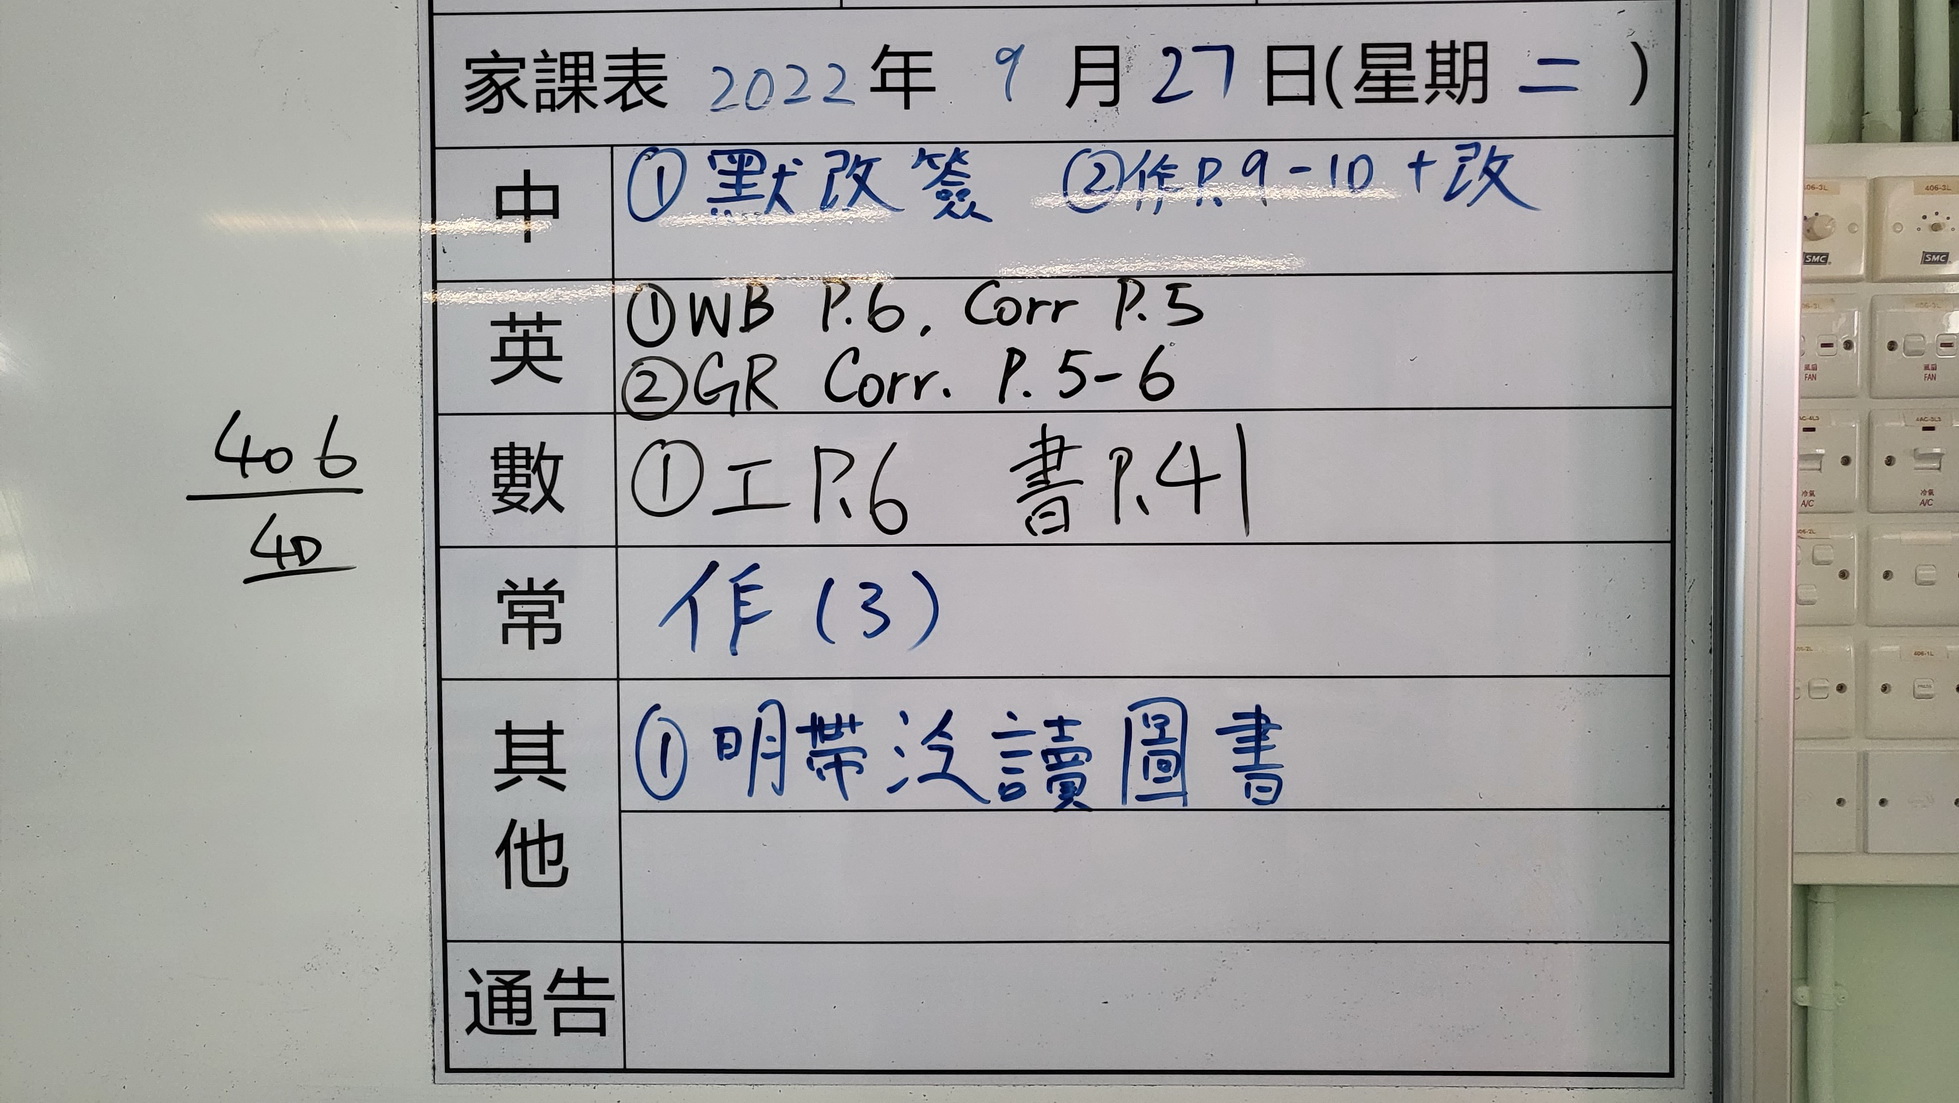 家課表 2022年 9月27日(星期二)
中
①默改簽 ②作P.9-10+改
英
①WB P.6, Corr P.5
②GR Corr. P.5-6
數
①工P.6 書P.41
常
作(3)
其他
①明帶泛讀圖書
通告
406
40
SMC
406-3L
SMC
風扇
FAN
風扇
FAN
冷氣
A/C
冷氣
A/C